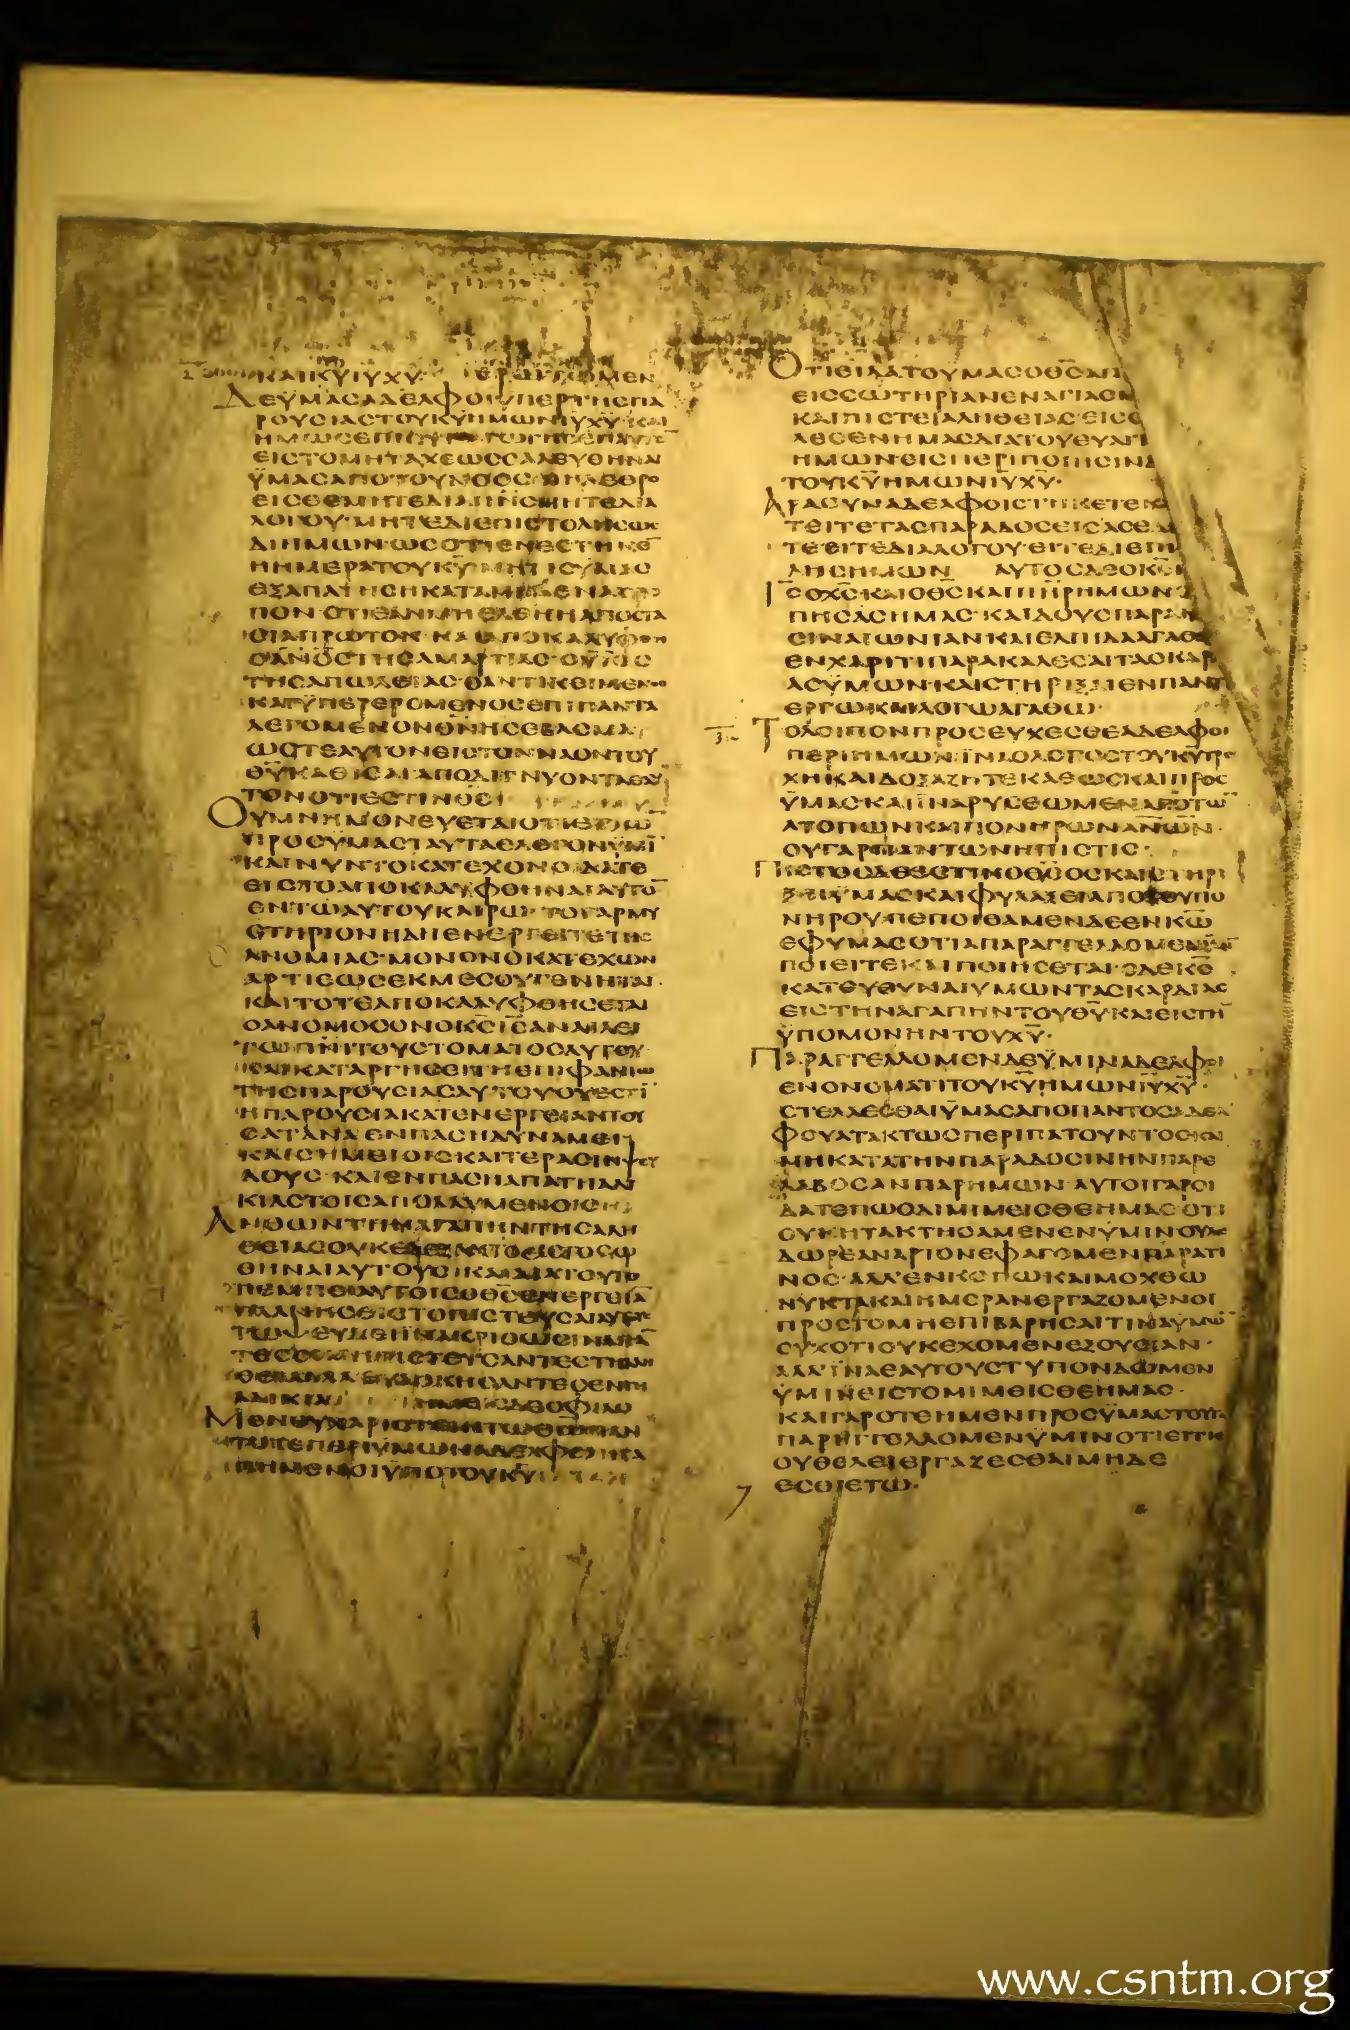 ΚΑΙΚΥΙΥΧΥ ΕΡΩΤΩΜΕΝ
ΔΕΥΜΑΣΑΔΕΛΦΟΙΥΠΕΡΤΗΣΠΑ
ΡΟΥΣΙΑΣΤΟΥΚΥΗΜΩΝΙΥΧΥΚΑΙ
ΕΙΣΤΟΜΗΤΑΧΕΩΣΣΑΛΕΥΘΗΝΑΙ
ΥΜΑΣΑΠΟΤΟΥΝΟΟΣ
ΛΟΓΟΥΜΗΤΕΔΙΕΠΙΣΤΟΛΗΣΩΣ
ΔΙΗΜΩΝΩΣΟΤΙΕΝΕΣΤΗΚΕ
ΗΗΜΕΡΑΤΟΥΚΥ
ΕΞΑΠΑΤΗΣΗΚΑΤΑ
ΠΟΝΟΤΙΕΑΝΜΗΕΛΘΗΗΑΠΟΣΤΑ
ΣΙΑΠΡΩΤΟΝΚΑΙΑΠΟΚΑΛΥΦΘΗ
ΟΑΝΟΣΤΗΣΑΜΑΡΤΙΑΣΟΥΙΟΣ
ΤΗΣΑΠΩΛΕΙΑΣΟΑΝΤΙΚΕΙΜΕΝΟΣ
ΚΑΙΥΠΕΡΕΡΟΜΕΝΟΣΕΠΙΠΑΝΤΑ
ΛΕΓΟΜΕΝΟΝΘΝΗΣΕΒΑΣΜΑ
ΩΣΤΕΑΥΤΟΝΕΙΣΤΟΝΝΑΟΝΤΟΥ
ΘΥΚΑΘΙΣΑΙΑΠΟΔΙΓΝΥΟΝΤΑΕΑΥ
ΤΟΝΟΤΙΕΣΤΙΝΘΣ
ΟΥΜΝΗΜΟΝΕΥΕΤΑΙΟΤΙΕΤΙΩ
ΠΡΟΣΥΜΑΣΤΑΥΤΑΕΛΕΓΟΝΥΜΙ
ΚΑΙΝΥΝΤΟΚΑΤΕΧΟΝΟΙΔΑΤΕ
ΕΙΣΤΟΑΠΟΚΑΛΥΦΘΗΝΑΙΑΥΤΟ
ΕΝΤΩΑΥΤΟΥΚΑΙΡΩΤΟΓΑΡΜΥ
ΣΤΗΡΙΟΝΗΔΗΕΝΕΡΓΕΙΤΕΤΗΣ
ΑΝΟΜΙΑΣΜΟΝΟΝΟΚΑΤΕΧΩΝ
ΑΡΤΙΕΩΣΕΚΜΕΣΟΥΓΕΝΗΤΑΙ
ΚΑΙΤΟΤΕΑΠΟΚΑΛΥΦΘΗΣΕΤΑΙ
ΟΑΝΟΜΟΣΟΝΟΚΣΙΣΑΝΑΛΕΙ
ΤΩΠΝΙΤΟΥΣΤΟΜΑΤΟΣΑΥΤΟΥ
ΚΑΙΚΑΤΑΡΓΗΣΕΙΤΗΕΠΙΦΑΝΙΑ
ΤΗΣΠΑΡΟΥΣΙΑΣΑΥΤΟΥΟΥΕΣΤΙ
ΗΠΑΡΟΥΣΙΑΚΑΤΕΝΕΡΓΕΙΑΝΤΟΥ
ΣΑΤΑΝΑΕΝΠΑΣΗΔΥΝΑΜΕΙ
ΚΑΙΣΗΜΕΙΟΙΣΚΑΙΤΕΡΑΣΙΝΨΕΥ
ΔΟΥΣΚΑΙΕΝΠΑΣΗΑΠΑΤΗΑΔΙ
ΚΙΑΣΤΟΙΣΑΠΟΛΛΥΜΕΝΟΙΣ
ΑΝΘΩΝΤΗΝΑΓΑΠΗΝΤΗΣΑΛΗ
ΘΕΙΑΣΟΥΚΕΔΕΞΑΝΤΟΕΙΣΤΟΣΩ
ΘΗΝΑΙΑΥΤΟΥΣΚΑΙΔΙΑΤΟΥΤΟ
ΠΕΜΠΕΙΑΥΤΟΙΣΟΘΣΕΝΕΡΓΕΙΑ
ΠΛΑΝΗΣΕΙΣΤΟΠΙΣΤΕΥΣΑΙΑΥΤΟΥΣ
ΑΔΙΚΙΑ
ΜΕΝΕΥΧΑΡΙΣΤΕΙΝΤΩΘΩΠΑΝ
ΤΟΤΕΠΕΡΙΥΜΩΝΑΔΕΛΦΟΙΗΓΑ
ΠΗΜΕΝΟΙΥΠΟΤΟΥΚΥ
ΟΤΙΕΙΛΑΤΟΥΜΑΣΟΘΣΑΠ
ΕΙΣΣΩΤΗΡΙΑΝΕΝΑΓΙΑΣΜ
ΚΑΙΠΙΣΤΕΙΑΛΗΘΕΙΑΣΕΙΣΟ
ΛΕΣΕΝΗΜΑΣΔΙΑΤΟΥΕΥΑΓΓ
ΗΜΩΝΕΙΣΠΕΡΙΠΟΙΗΣΙΝΔ
ΤΟΥΚΥΗΜΩΝΙΥΧΥ
ΑΡΑΟΥΝΑΔΕΛΦΟΙΣΤΗΚΕΤΕΚ
ΤΕΙΤΕΤΑΣΠΑΡΑΔΟΣΕΙΣΑΣΕΔ
ΤΕΕΙΤΕΔΙΑΛΟΓΟΥΕΙΤΕΔΙΕΠΙ
ΛΗΣΗΜΩΝ ΑΥΤΟΣΔΕΟΚΣ
ΙΣΟΧΣΚΑΙΟΘΣΚΑΙΠΗΡΗΜΩΝΟ
ΠΗΣΑΣΗΜΑΣΚΑΙΔΟΥΣΠΑΡΑΚ
ΣΙΝΑΙΩΝΙΑΝΚΑΙΕΛΠΙΔΑΑΓΑΘ
ΕΝΧΑΡΙΤΙΠΑΡΑΚΑΛΕΣΑΙΤΑΣΚΑΡ
ΔΑΣΥΜΩΝΚΑΙΣΤΗΡΙΞΑΙΕΝΠΑΝΤΙ
ΕΡΓΩΚΑΙΛΟΓΩΑΓΑΘΩ
ΤΟΛΟΙΠΟΝΠΡΟΣΕΥΧΕΣΘΕΑΔΕΛΦΟΙ
ΠΕΡΙΗΜΩΝΙΝΑΟΛΟΓΟΣΤΟΥΚΥΤΡΕ
ΧΗΚΑΙΔΟΞΑΖΗΤΕΚΑΘΩΣΚΑΙΠΡΟΣ
ΥΜΑΣΚΑΙΙΝΑΡΥΣΘΩΜΕΝΑΠΟΤΩ
ΑΤΟΠΩΝΚΑΙΠΟΝΗΡΩΝΑΝΩΝ
ΟΥΓΑΡΠΑΝΤΩΝΗΠΙΣΤΙΣ
ΠΙΣΤΟΣΔΕΕΣΤΙΝΟΘΣΟΣΚΑΙΣΤΗΡΙ
ΞΕΙΥΜΑΣΚΑΙΦΥΛΑΞΕΙΑΠΟΤΟΥΠΟ
ΝΗΡΟΥΠΕΠΟΙΘΑΜΕΝΔΕΕΝΚΩ
ΕΦΥΜΑΣΟΤΙΑΠΑΡΑΓΓΕΛΛΟΜΕΝ
ΠΟΙΕΙΤΕΚΑΙΠΟΙΗΣΕΤΑΙΟΔΕΚΣ
ΚΑΤΕΥΘΥΝΑΙΥΜΩΝΤΑΣΚΑΡΔΙΑΣ
ΕΙΣΤΗΝΑΓΑΠΗΝΤΟΥΘΥΚΑΙΕΙΣΤΗ
ΥΠΟΜΟΝΗΝΤΟΥΧΥ
ΠΑΡΑΓΓΕΛΛΟΜΕΝΔΕΥΜΙΝΑΔΕΛΦΟΙ
ΕΝΟΝΟΜΑΤΙΤΟΥΚΥΗΜΩΝΙΥΧΥ
ΣΤΕΛΛΕΣΘΑΙΥΜΑΣΑΠΟΠΑΝΤΟΣΑΔΕΛ
ΦΟΥΑΤΑΚΤΩΣΠΕΡΙΠΑΤΟΥΝΤΟΣΚΑΙ
ΜΗΚΑΤΑΤΗΝΠΑΡΑΔΟΣΙΝΗΝΠΑΡΕ
ΛΑΒΟΣΑΝΠΑΡΗΜΩΝΑΥΤΟΙΓΑΡΟΙ
ΔΑΤΕΠΩΣΔΙΜΙΜΕΙΣΘΕΗΜΑΣΟΤΙ
ΟΥΚΗΤΑΚΤΗΣΑΜΕΝΕΝΥΜΙΝΟΥΔΕ
ΔΩΡΕΑΝΑΡΤΟΝΕΦΑΓΟΜΕΝΠΑΡΑΤΙ
ΝΟΣΑΛΛΕΝΚΟΠΩΚΑΙΜΟΧΘΩ
ΝΥΚΤΑΚΑΙΗΜΕΡΑΝΕΡΓΑΖΟΜΕΝΟΙ
ΠΡΟΣΤΟΜΗΕΠΙΒΑΡΗΣΑΙΤΙΝΑΥΜΩ
ΟΥΧΟΤΙΟΥΚΕΧΟΜΕΝΕΞΟΥΣΙΑΝ
ΑΛΛΙΝΑΕΑΥΤΟΥΣΤΥΠΟΝΔΩΜΕΝ
ΥΜΙΝΕΙΣΤΟΜΙΜΕΙΣΘΕΗΜΑΣ
ΚΑΙΓΑΡΟΤΕΗΜΕΝΠΡΟΣΥΜΑΣΤΟΥΤΟ
ΠΑΡΗΓΓΕΛΛΟΜΕΝΥΜΙΝΟΤΙΕΙΤΙΣ
ΟΥΘΕΛΕΙΕΡΓΑΖΕΣΘΑΙΜΗΔΕ
ΕΣΘΙΕΤΩ
www.csntm.org